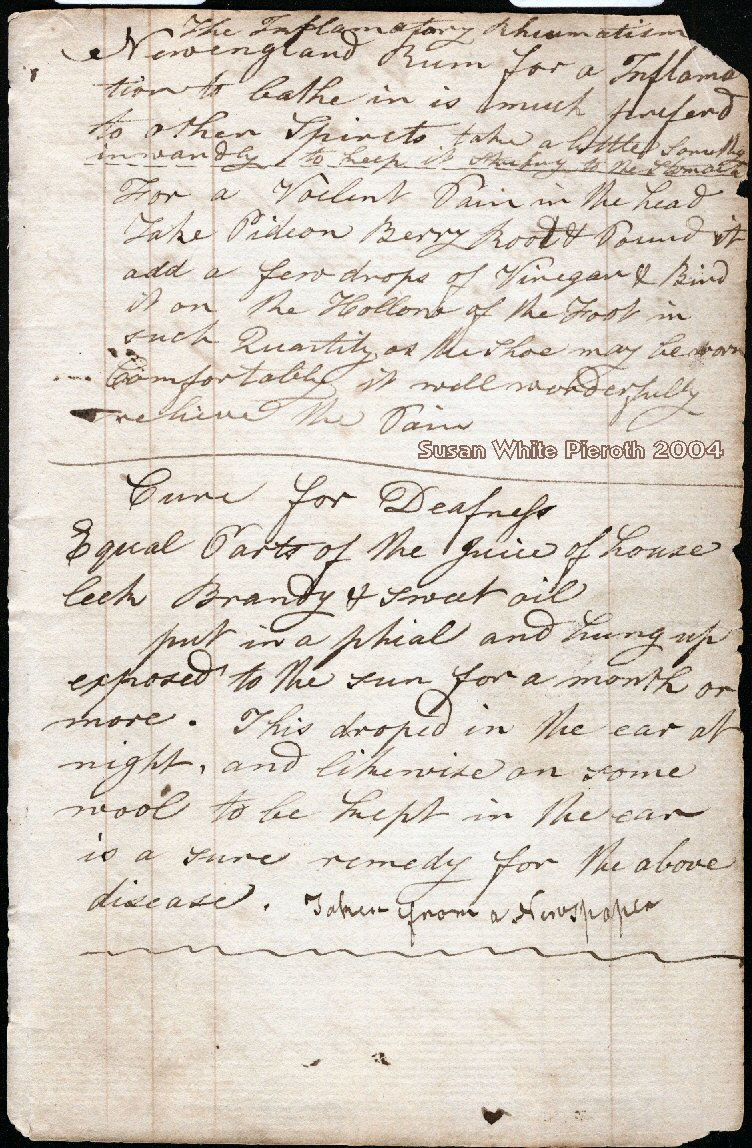 The Inflamatory Rheumatism
Newengland Rum for a Inflama
tion to bathe in is much preferd
to other Spirets take a little
inwardly to keep it to the Stomach
For a Voilent Pain in the head
Take Pideon Berry Root & Pound it
add a few drops of Vinegar & Bind
it on the Hollow of the Foot in
such Quantity as the shoe may be worn
Comfortably it will wonderfully
relieve the Pain
Susan White Pieroth 2004
Cure for Deafness
Equal Parts of the Juice of house
leek Brandy & sweet oil
put in a phial and hung up
exposed to the sun for a month or
more. This droped in the ear at
night, and likewise on some
wool to be kept in the ear
is a sure remedy for the above
disease. Taken from a Newspaper